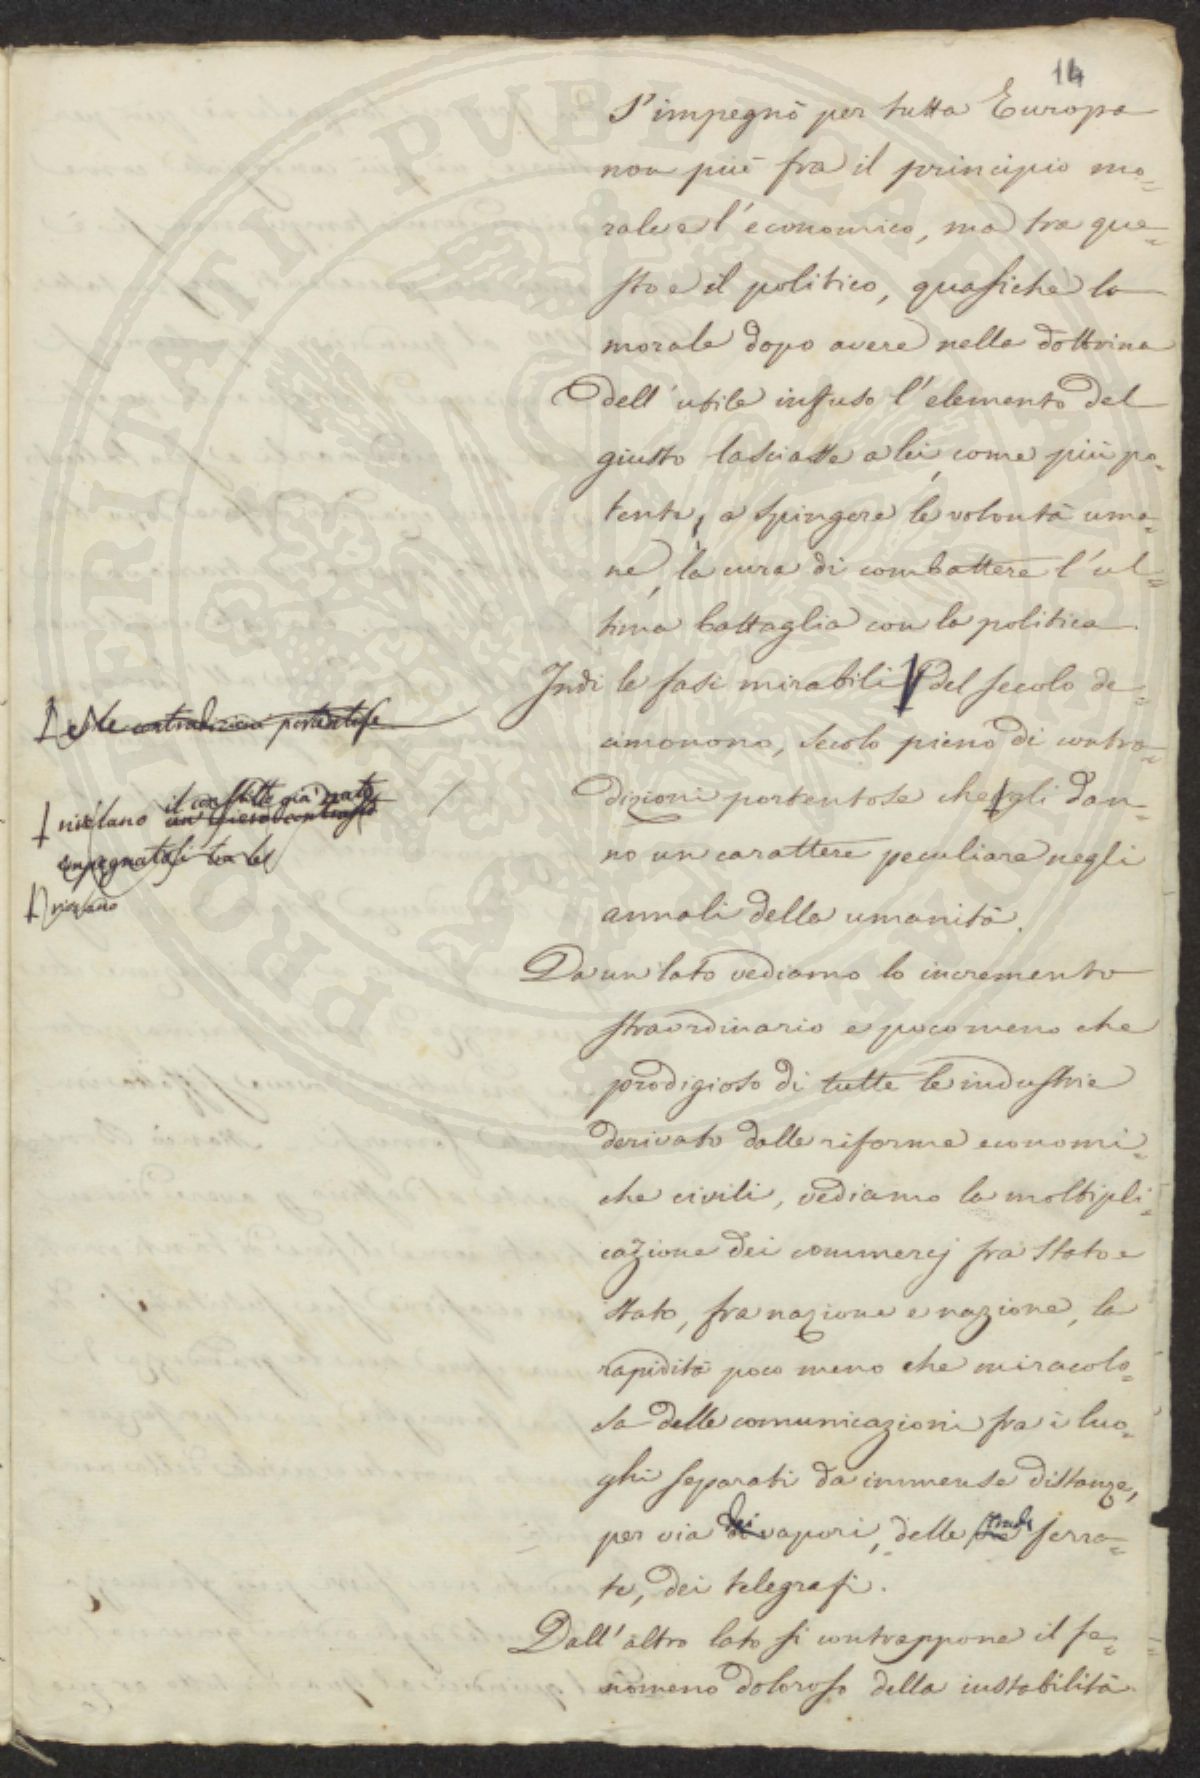 14
S'impegnò per tutta Europa
non più fra il principio mo=
rale e l'economico, ma tra que=
sto e il politico, quasichè la
morale dopo avere nella dottrina
dell'utile infuso l'elemento del
giusto lasciasse a lei, come più po=
tente, a spingere le volontà uma=
ne, la cura di combattere l'ul=
tima battaglia con la politica.
Indi le fasi mirabili del secolo de=
cimonono, secolo pieno di contra=
dizioni portentose che gli dan=
no un carattere peculiare negli
annali della umanità.
Da un lato vediamo lo incremento
straordinario e poco meno che
prodigioso di tutte le industrie
derivato dalle riforme economi=
che civili, vediamo la moltipli=
cazione dei commercj fra stato e
stato, fra nazione e nazione, la
rapidità poco meno che miracolo=
sa delle comunicazioni fra i luo=
ghi separati da immense distanze,
per via dei vapori, delle strade ferra=
te, dei telegrafi.
Dall'altro lato si contrappone il fe=
nomeno doloroso della instabilità
e le contradizioni portentose
rivelano il conflitto già nato
un contrasto
impegnatosi tra le
rivelano
PRO VERITATI PUBLICAE